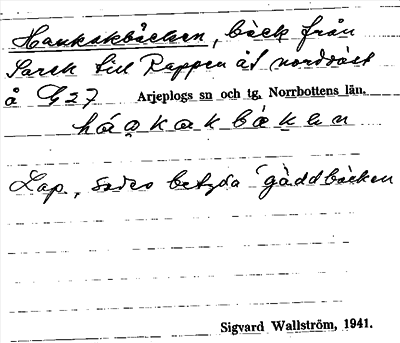 Haukakbäcken, bäck från
Sarek till Rappen åt nordväst
å G27 Arjeplogs sn och tg, Norrbottens län.
háọkakbäkən
Lap., sades betyda "gäddbäcken
Sigvard Wallström, 1941.